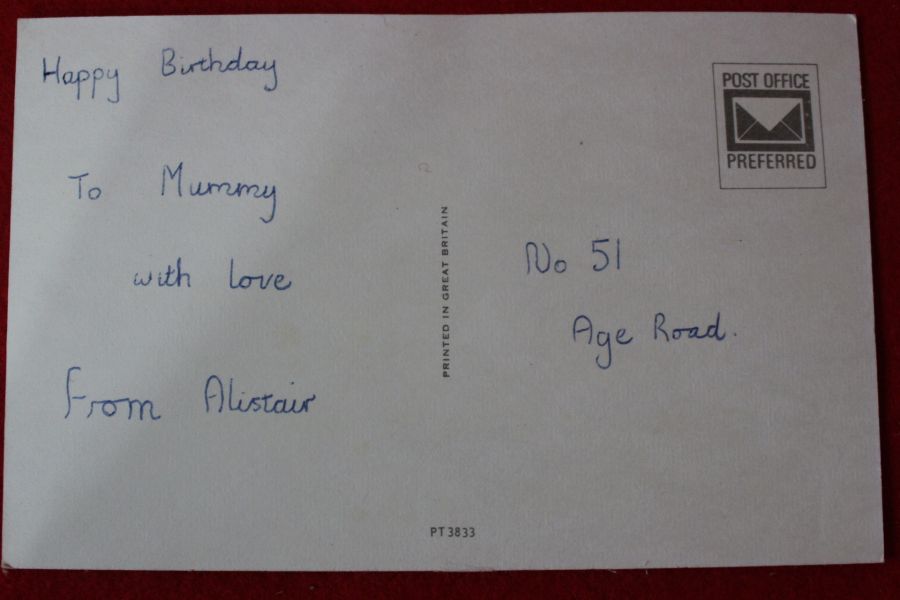 Happy Birthday
To Mummy
with love
From Alistair
PRINTED IN GREAT BRITAIN
POST OFFICE
PREFERRED
No 51
Age Road.
PT3833